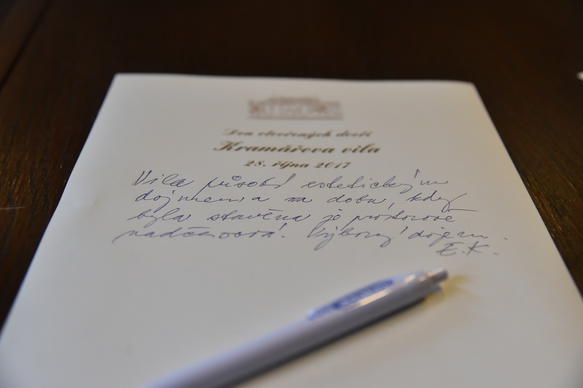 Den otevřených dveří
Kramářova vila
28. října 2017
Vila působí estetickým
dojmem a na dobu, kdy
byla stavěna je prostorově
nadčasová. Výborný dojem.
E.K.